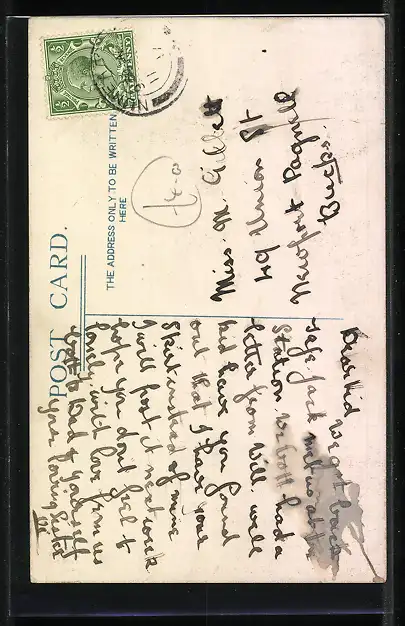 POST CARD.
THE ADDRESS ONLY TO BE WRITTEN
HERE
4-0
Miss M. Gillett
49 Union St
Newport Pagnell
Bucks.
Dear Kid we got back
safe Jack met us at the
Station we both had a
letter from Will. well
kid have you found
out that I have your
Skirt instead of mine
I will post it next week
hope you dont feel to
lonely with love from us
both to Dad & yourself
your loving Sister